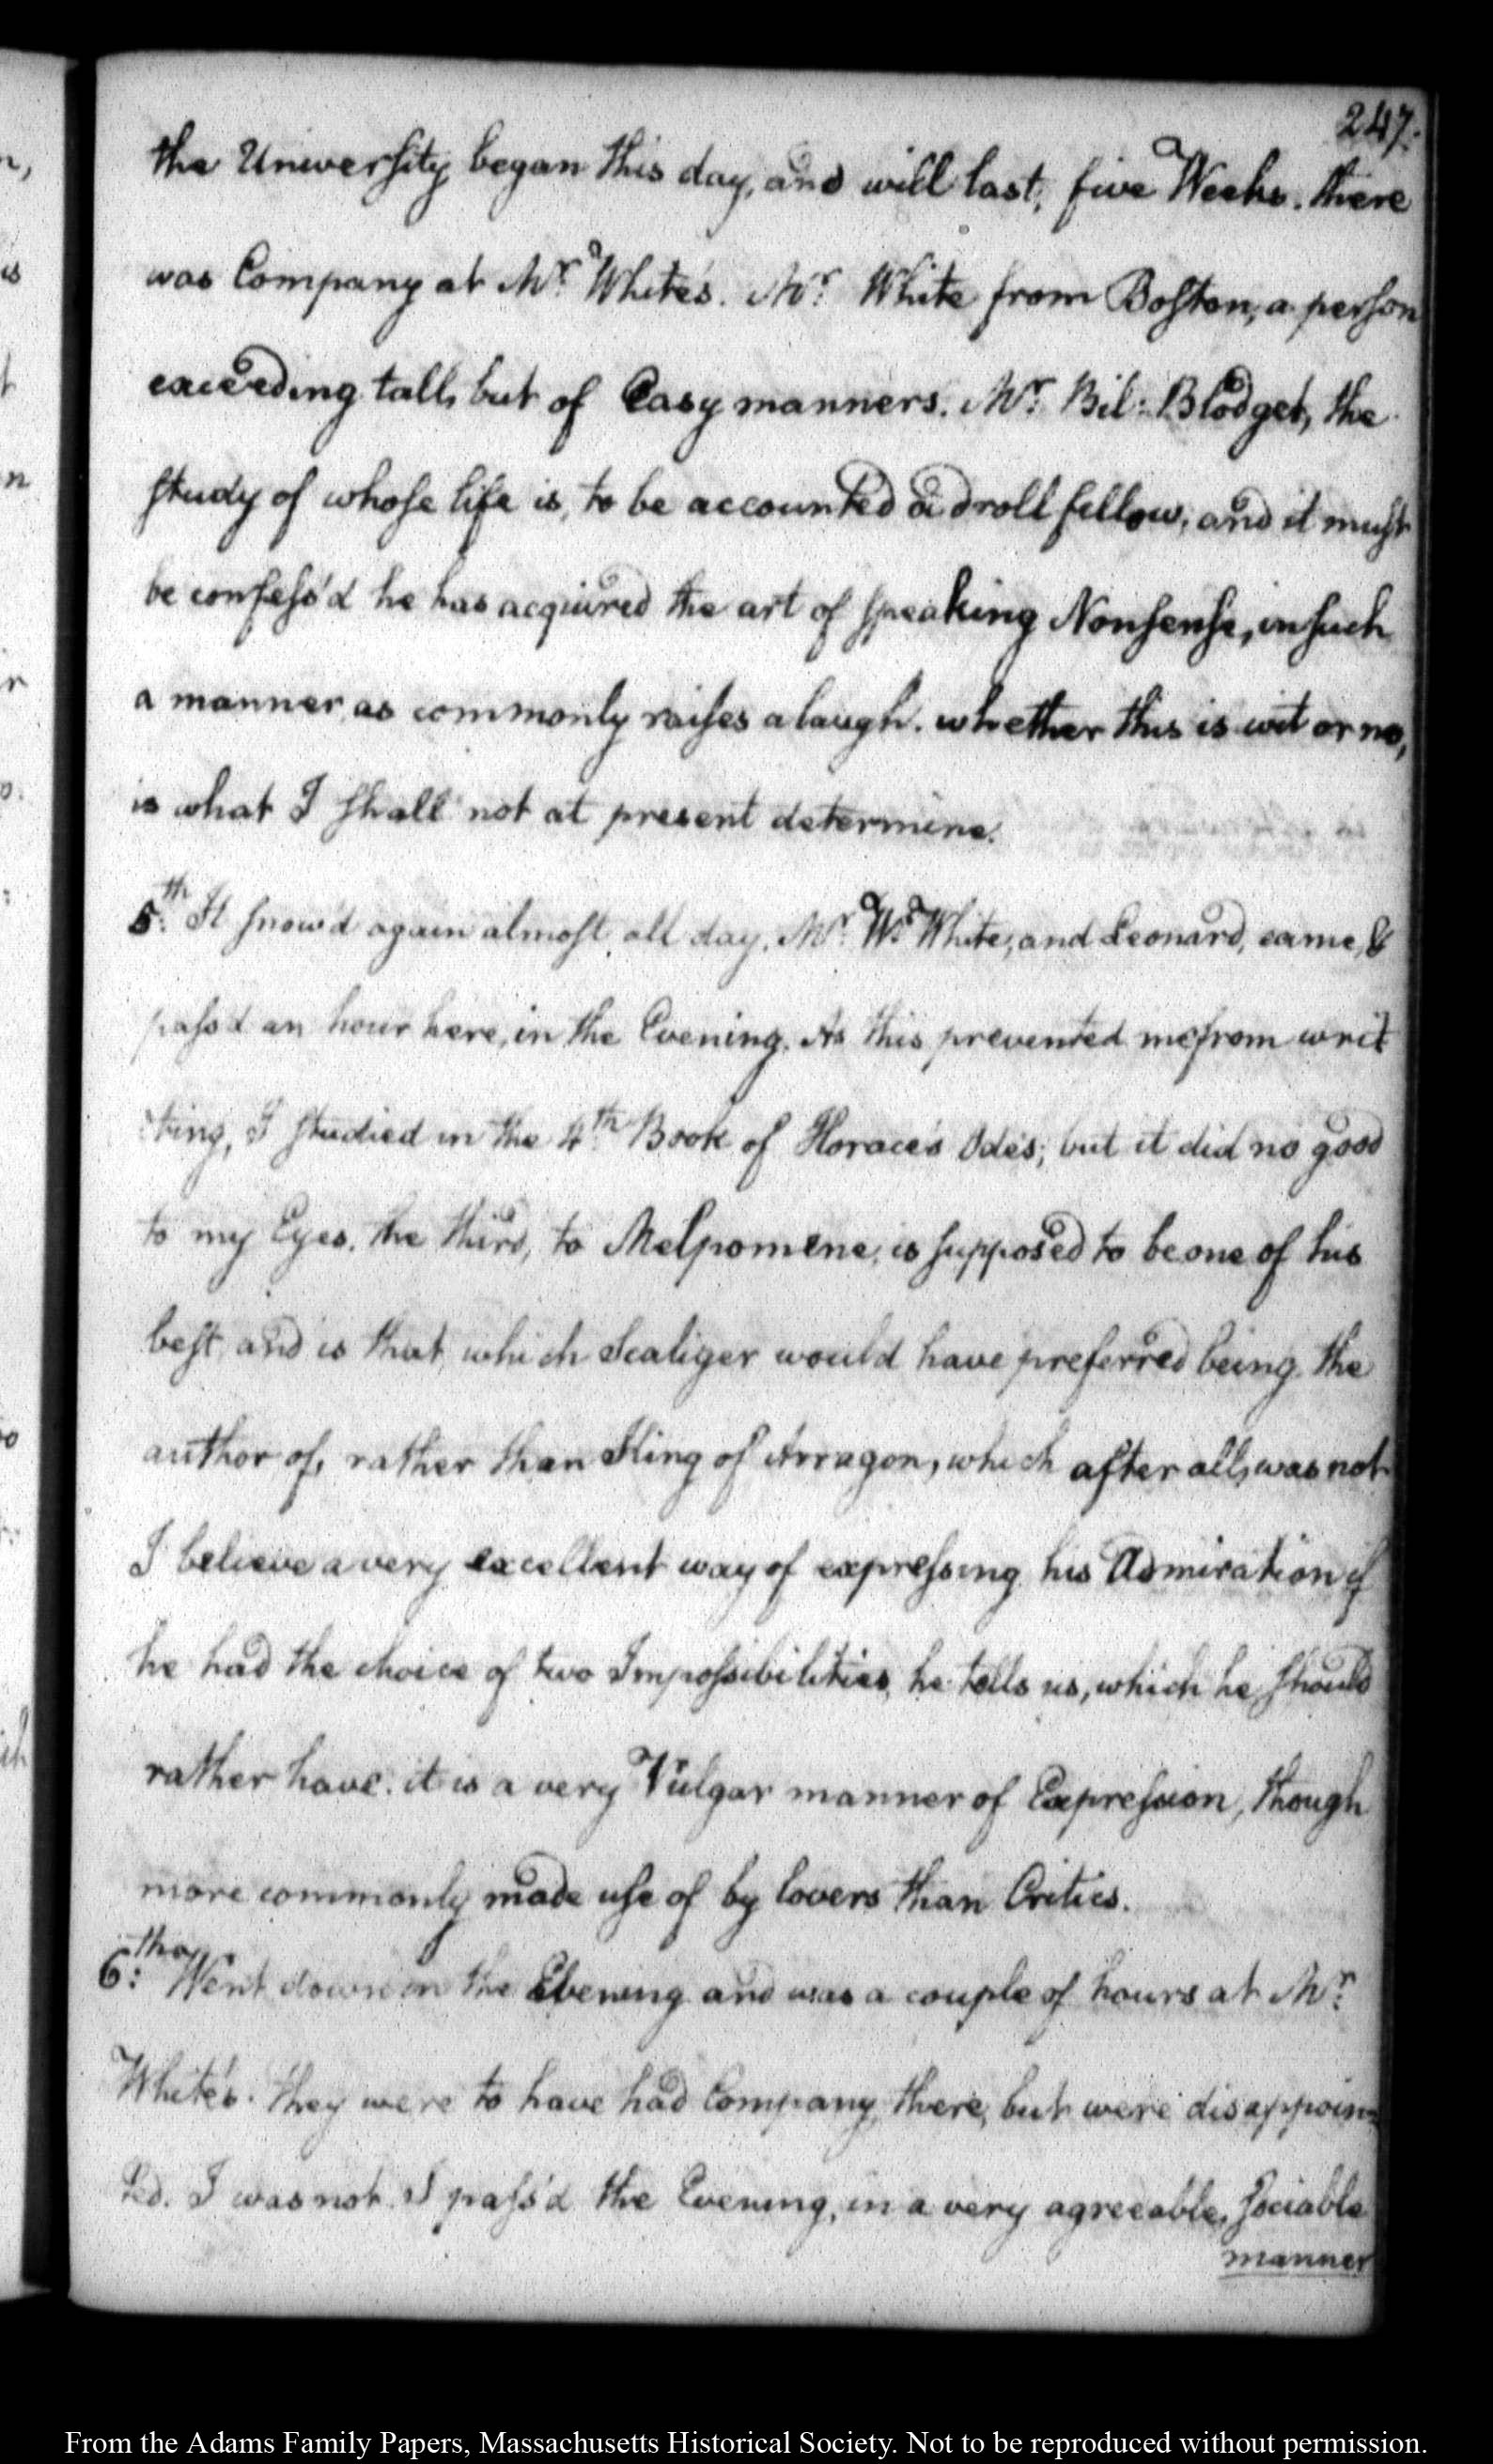 247.
the University began this day, and will last, five Weeks. there
was Company at Mr. White's. Mr. White from Boston, a person
exceeding tall, but of Easy manners. Mr. Bil: Blodget, the
study of whose life is, to be accounted a droll fellow, and it must
be confess'd he has acquired the art of speaking Nonsense, in such
a manner, as commonly raises a laugh. whether this is wit or no,
is what I shall not at present determine.
5th: It snow'd again almost all day. Mr. W. White, and Leonard, came, &
pass'd an hour here, in the Evening. As this prevented me from writ
ting, I studied in the 4th. Book of Horace's Odes; but it did no good
to my Eyes. the third, to Melpomene, is supposed to be one of his
best, and is that which Scaliger would have preferred being the
author of, rather than King of Arragon, which after all, was not
I believe a very excellent way of expressing his Admiration of
he had the choice of two Impossibilities, he tells us, which he should
rather have. it is a very Vulgar manner of Expression, though
more commonly made use of by lovers than Critics.
6th: Went down in the Evening and was a couple of hours at Mr.
White's. they were to have had Company there, but were disappoin=
ted. I was not. I pass'd the Evening, in a very agreeable, sociable
manner
From the Adams Family Papers, Massachusetts Historical Society. Not to be reproduced without permission.